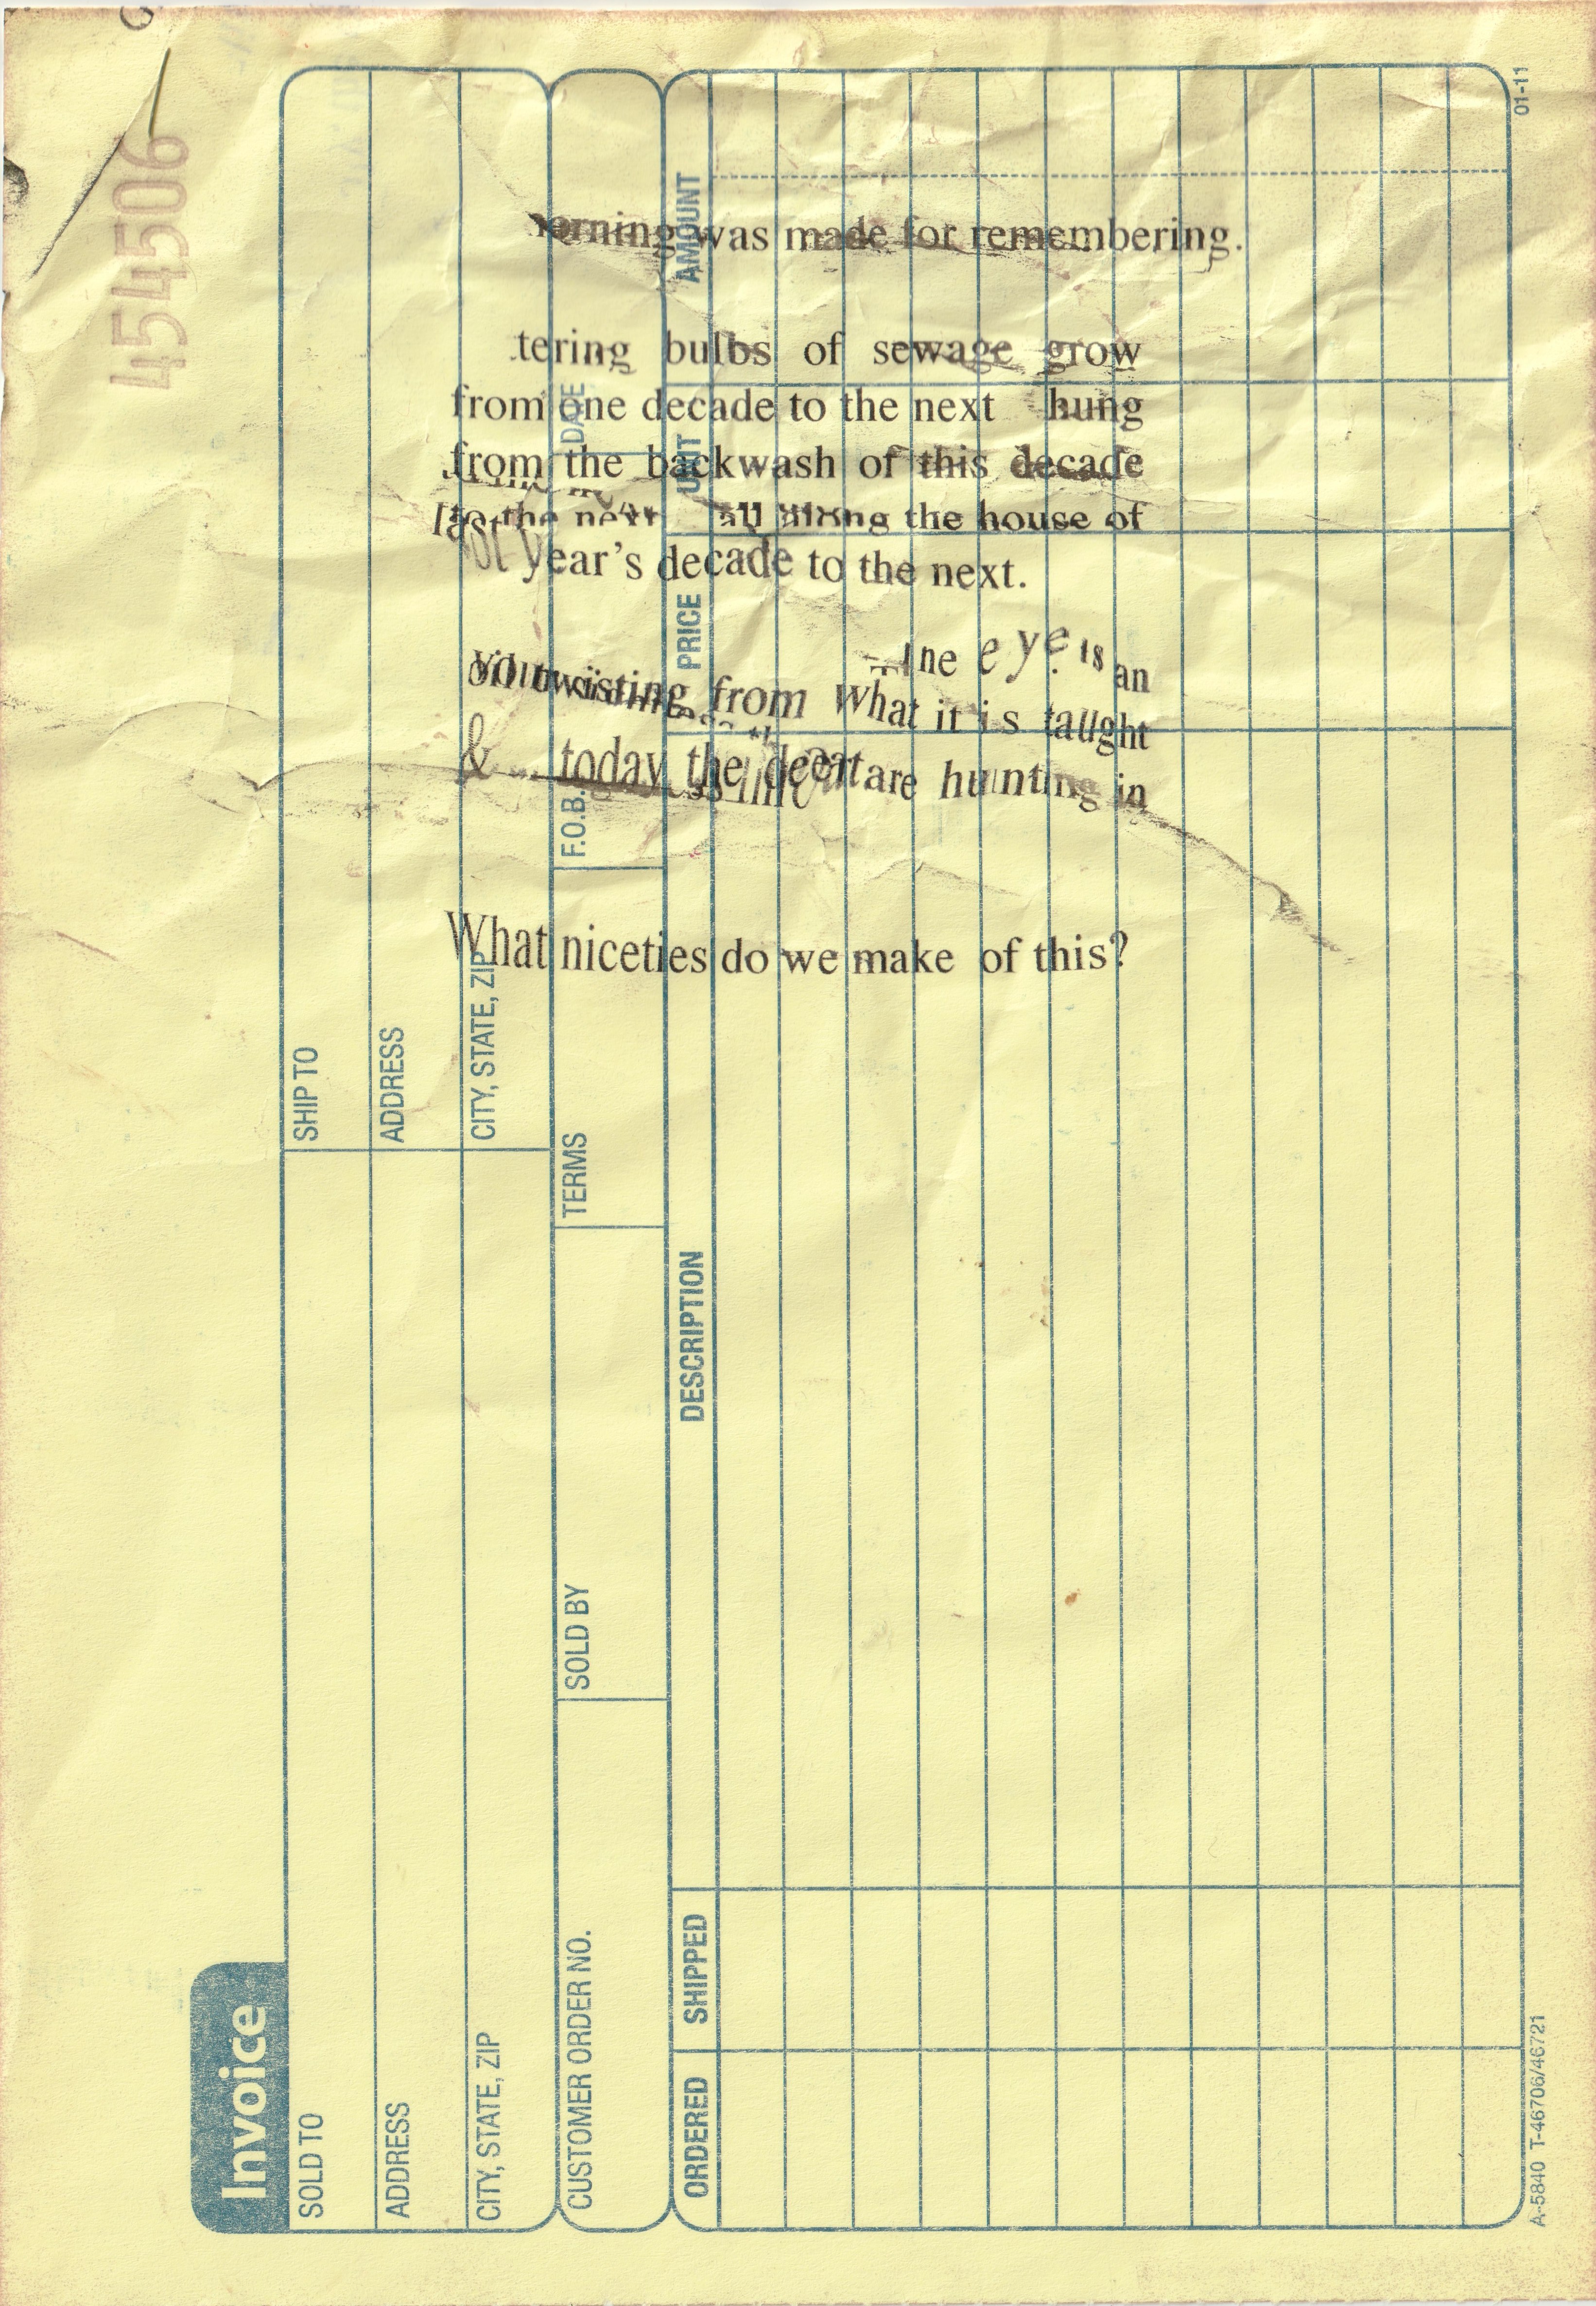 454506
01-11
was made for remembering.
tering bulbs of sewage grow
from one decade to the next hung
from the backwash of this decade
to the next all along the house of
last year's decade to the next.
eye is an
twisting from What it is taught
& today the are hunting in
What niceties do we make of this?
Invoice
SOLD TO
SHIP TO
ADDRESS
ADDRESS
CITY, STATE, ZIP
CITY, STATE, ZIP
CUSTOMER ORDER NO.
SOLD BY
TERMS
F.O.B.
DATE
ORDERED
SHIPPED
DESCRIPTION
PRICE
UNIT
AMOUNT
A-5840 T-46706/46721